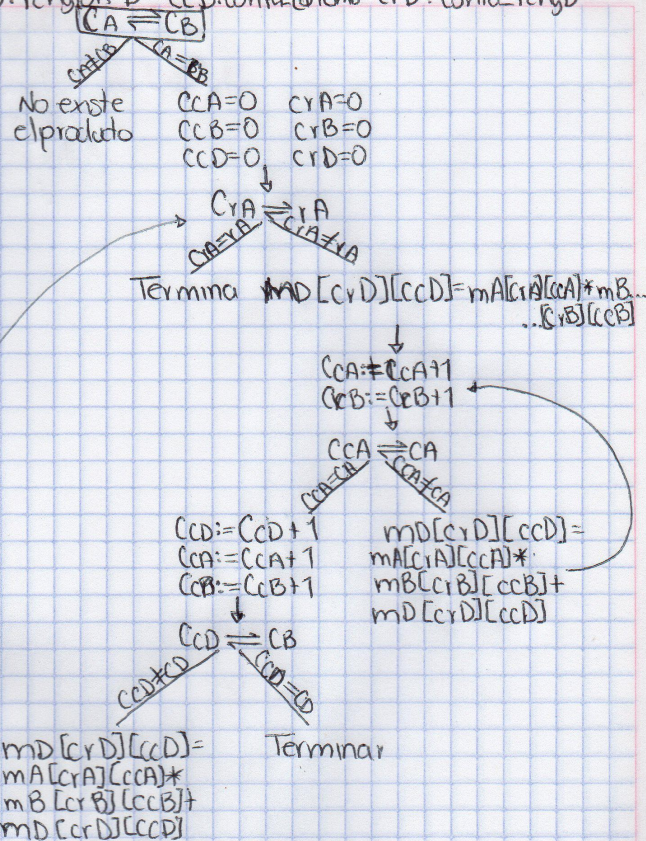 CA ⇌ CB
CA≠CB CA=BB
No existe
el producto
CcA=0 CrA=0
CcB=0 CrB=0
CcD=0 CrD=0
CrA ⇌ rA
CrA=rA CrA≠rA
Termina mD[CrD][ccD]=mA[crA][ccA]*mB...
...[CrB][ccB]
CcA:=CcA+1
CcB:=CcB+1
CcA ⇌ CA
CcA=CA CcA≠CA
CcD:=CcD+1
CcA:=CcA+1
CcB:=CcB+1
mD[crD][ccD]=
mA[crA][ccA]*
mB[crB][ccB]+
mD[crD][ccD]
CcD ⇌ CB
CcD≠CD CCD=CD
mD[crD][ccD]=
mA[crA][ccA]*
mB[crB][ccB]+
mD[crD][ccD]
Terminar